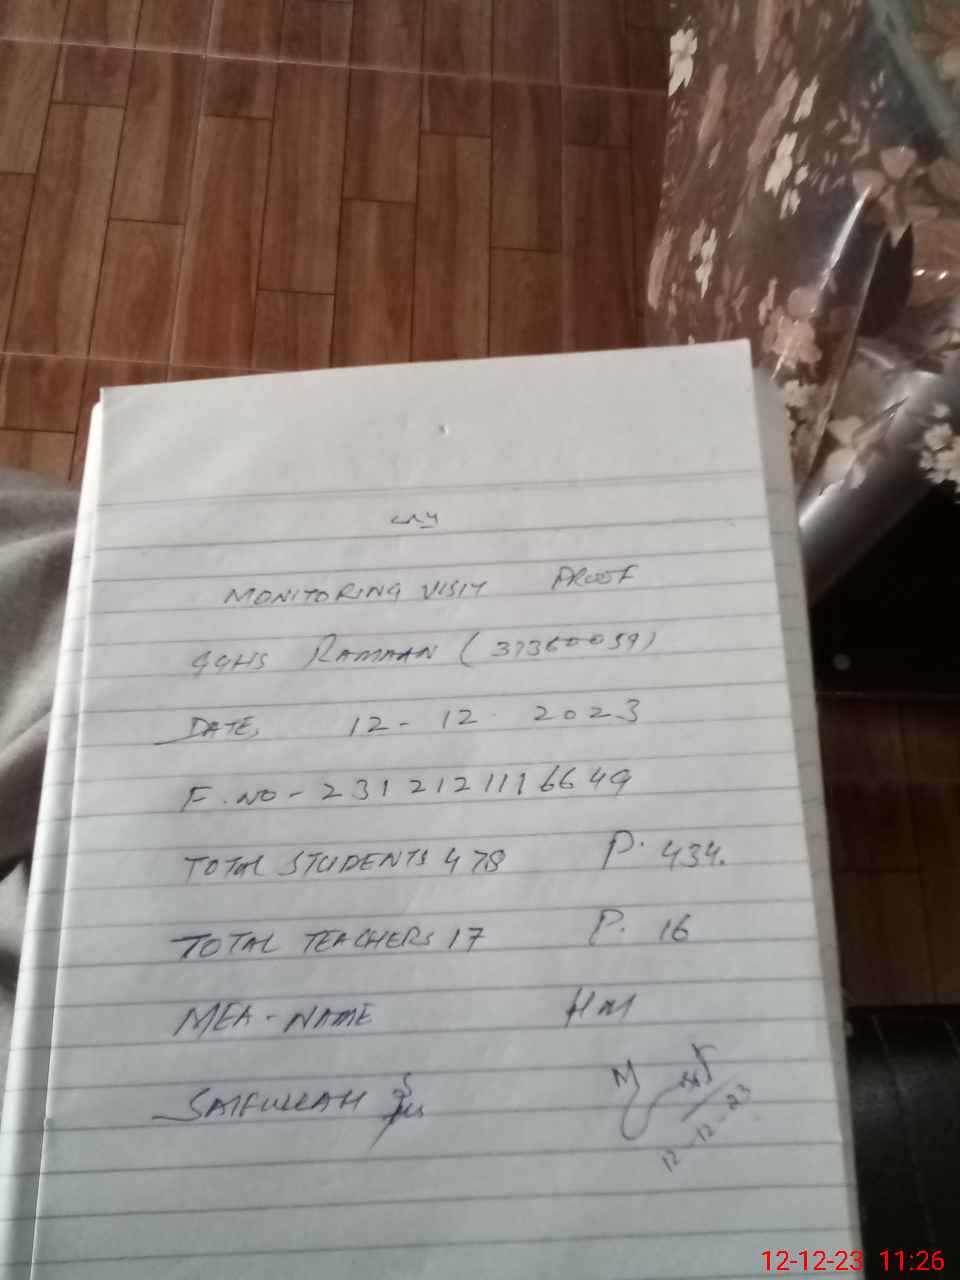 MONITORING VISIT PROOF
GGHS RAMAAN (37360059)
DATE, 12-12-2023
F.NO-2312121116649
TOTAL STUDENTS 478 P. 434.
TOTAL TEACHERS 17 P. 16
MEA-NAME HM
SAIFULLAH
12-12-23
12-12-23 11:26